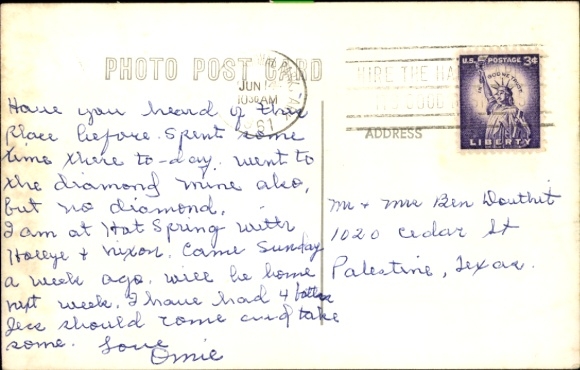 PHOTO POST CARD
JUN
10 30 AM
61
HIRE THE HA
U.S. POSTAGE 3¢
IN GOD WE TRUST
LIBERTY
ADDRESS
Have you heard of this
place before. Spent some
time there to-day. went to
the diamond mine also,
but no diamond.
I am at Hot Spring with
& Nixon. Came Sunday
a week ago. will be home
next week. I have had 4 baths
should come and take
some. Love
Omie
Mr + Mrs Ben Douthit
1020 Cedar St
Palestine, Texas.